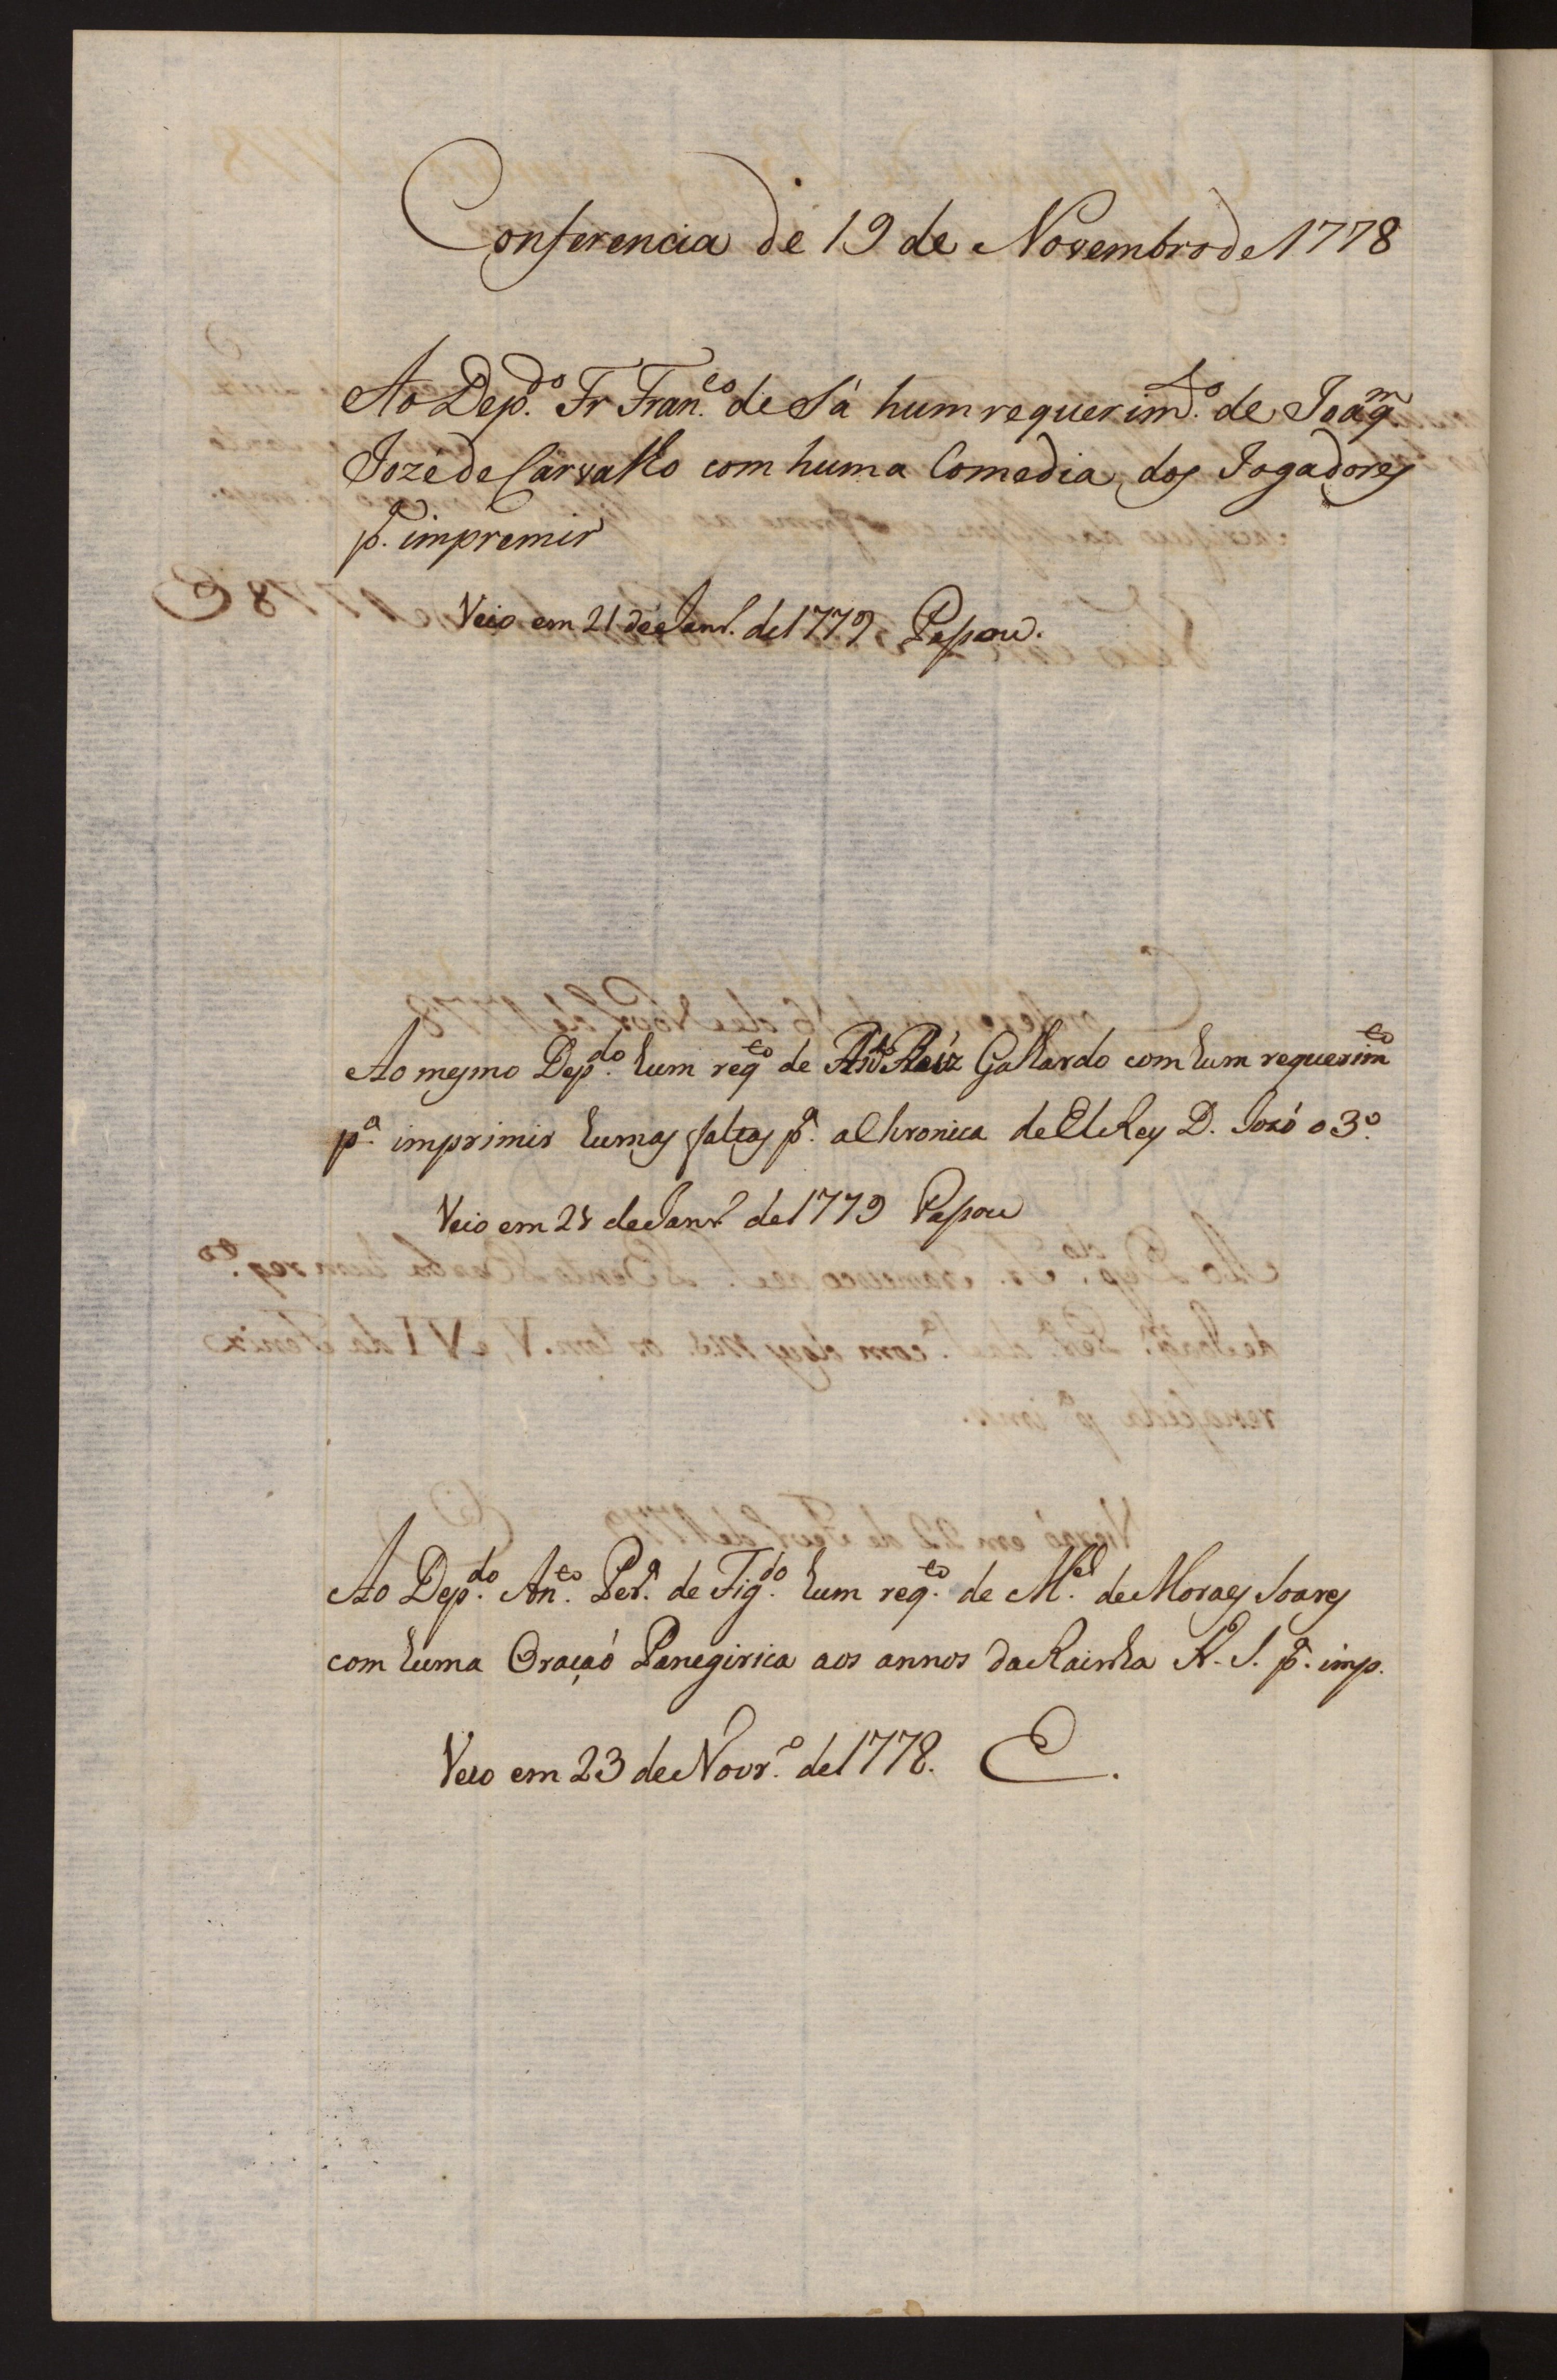 Conferencia de 19 de Novembro de 1778
Ao Dep.do Fr Fran.co de Sá hum requerim.to de Joaq.m
Jozé de Carvalho com huma Comedia dos Jogadores
p.a impremir
Veio em 21 de Janr. de 1779 Passou.
Ao mesmo Dep.do hum req.to de Ant.o Roiz Galhardo com hum requerim.to
p.a imprimir humas faltas p.a a Chronica de ElRey D. Joaó o 3.o
Veio em 28 de Janr.o de 1779 Passou
Ao Dep.do An.to Per.a de Fig.do hum req.to de M.el de Moraes Soares
com huma Oraçaó Panegirica aos annos da Rainha N. S. p.a imp.
Veio em 23 de Novr.o de 1778. E.